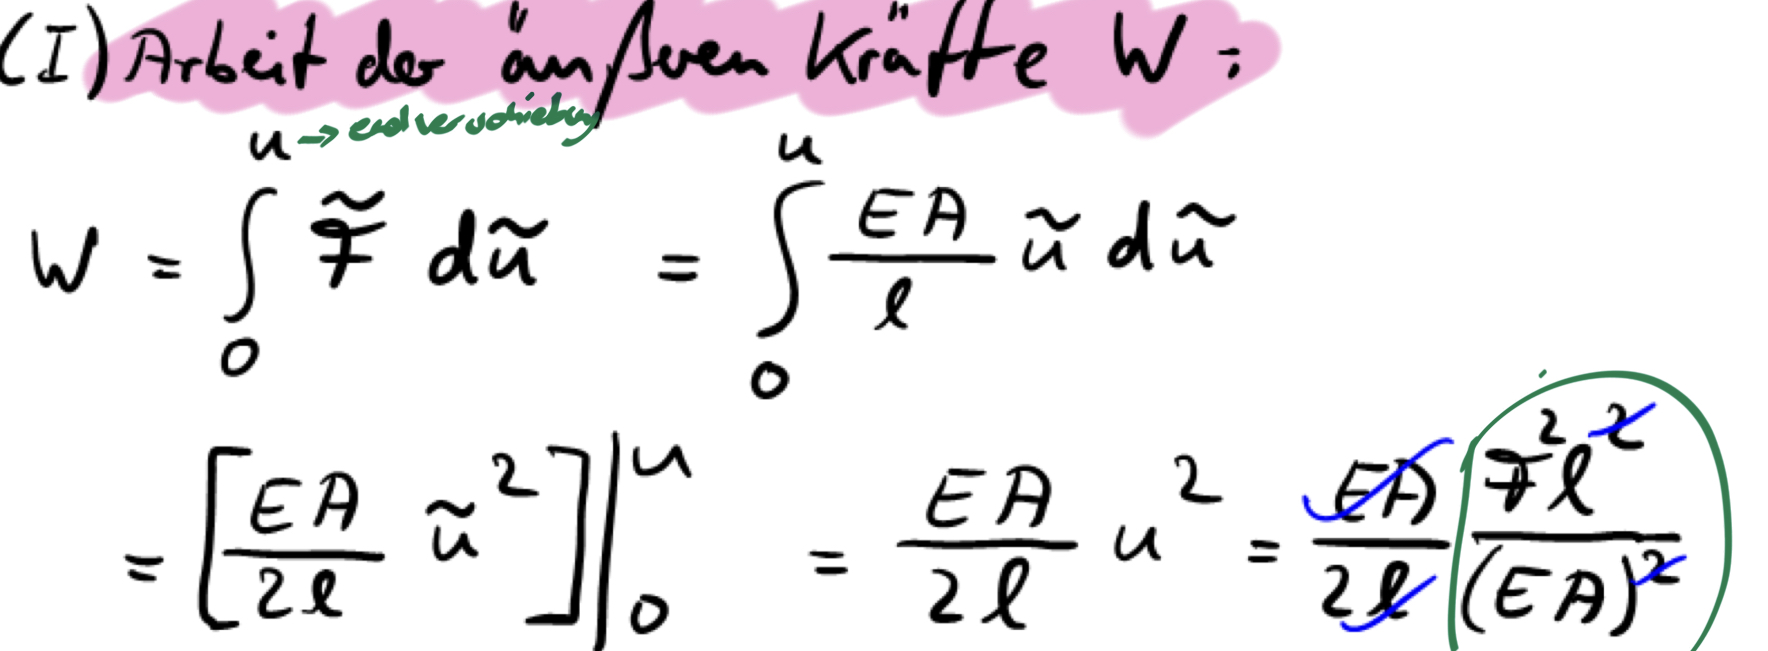 (I) Arbeit der äußeren Kräfte W:
u → endverschiebung
W = ∫₀ᵘ F̃ dũ = ∫₀ᵘ EA/l ũ dũ
= [EA/2l ũ²]|₀ᵘ = EA/2l u² = EA/2l F²l²/(EA)²